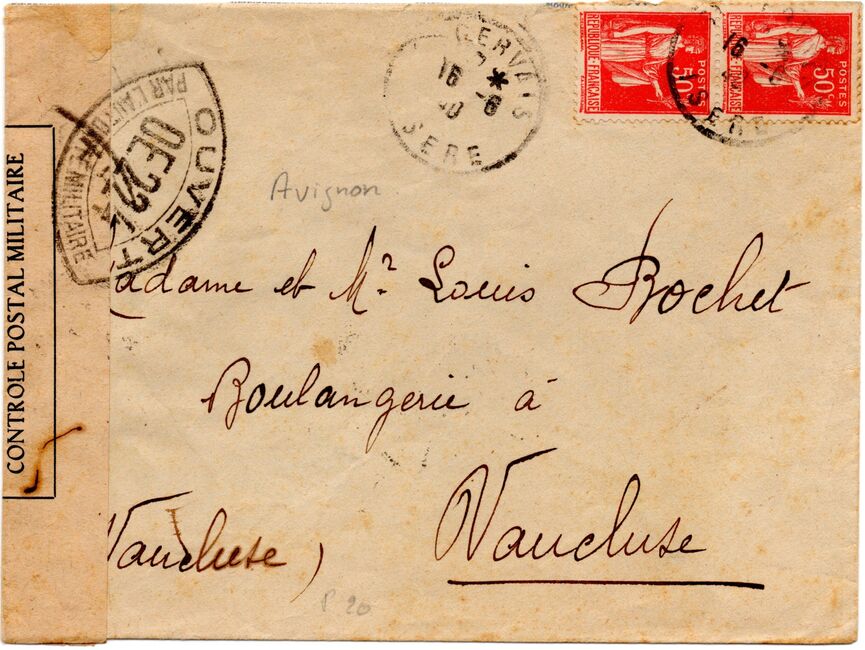 GERVAIS
16 *
40 -6
ISERE
REPUBLIQUE-FRANÇAISE
50c
POSTES
REPUBLIQUE-FRANÇAISE
50c
POSTES
16
ISERE
OUVERT
PAR L'AUTORITÉ MILITAIRE
CONTROLE POSTAL MILITAIRE
Avignon
Madame et Mr Louis Rochet
Boulangerie à
Vaucluse
Vaucluse)
P 20